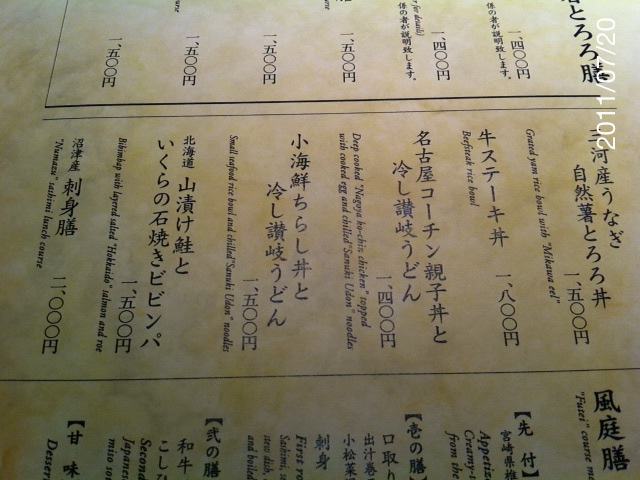 とろろ膳
一、四〇〇円
係の者が説明致します。
一、四〇〇円
係の者が説明致します。
一、五〇〇円
一、五〇〇円
一、五〇〇円
一、五〇〇円
三河産うなぎ
自然薯とろろ丼
一、五〇〇円
Grated yam rice bowl with "Mikawa eel"
牛ステーキ丼
一、八〇〇円
Beefsteak rice bowl
名古屋コーチン親子丼と
冷し讃岐うどん
一、四〇〇円
Deep cooked "Nagoya ko-chin chicken" topped
with cooked egg and chilled "Sanuki Udon" noodles
小海鮮ちらし丼と
冷し讃岐うどん
一、五〇〇円
Small seafood rice bowl and chilled "Sanuki Udon" noodles
北海道 山漬け鮭と
いくらの石焼きビビンパ
一、五〇〇円
Bibimbap with layered salted "Hokkaido" salmon and roe
沼津産 刺身膳
二、〇〇〇円
"Numazu" sashimi lunch course
風庭膳
"Futei" course
【先 付】
宮崎県
Appetiz
Creamy
from the
【壱の膳】
口取り
出汁巻
小松菜
刺身
First
Sashimi,
stew dish,
and boiled
【弐の膳】
和牛
こしひ
Second
Japanes
miso so
【甘 味】
Desser
2011/07/20